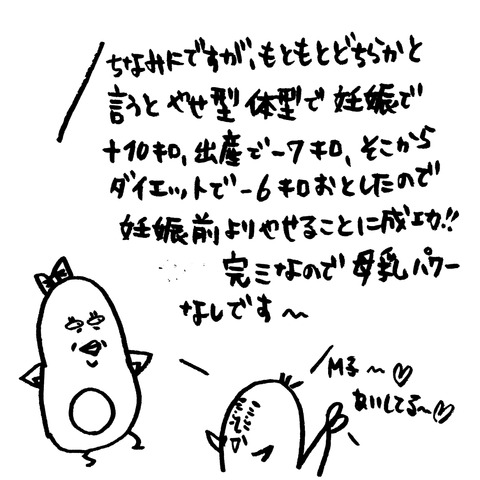 ちなみにですが、もともとどちらかと
言うとやせ型体型で妊娠で
+10キロ、出産で-7キロ、そこから
ダイエットで-6キロおとしたので
妊娠前よりやせることに成功!!
完ミなので母乳パワー
なしです〜
M子〜♡
あいしてる〜♡